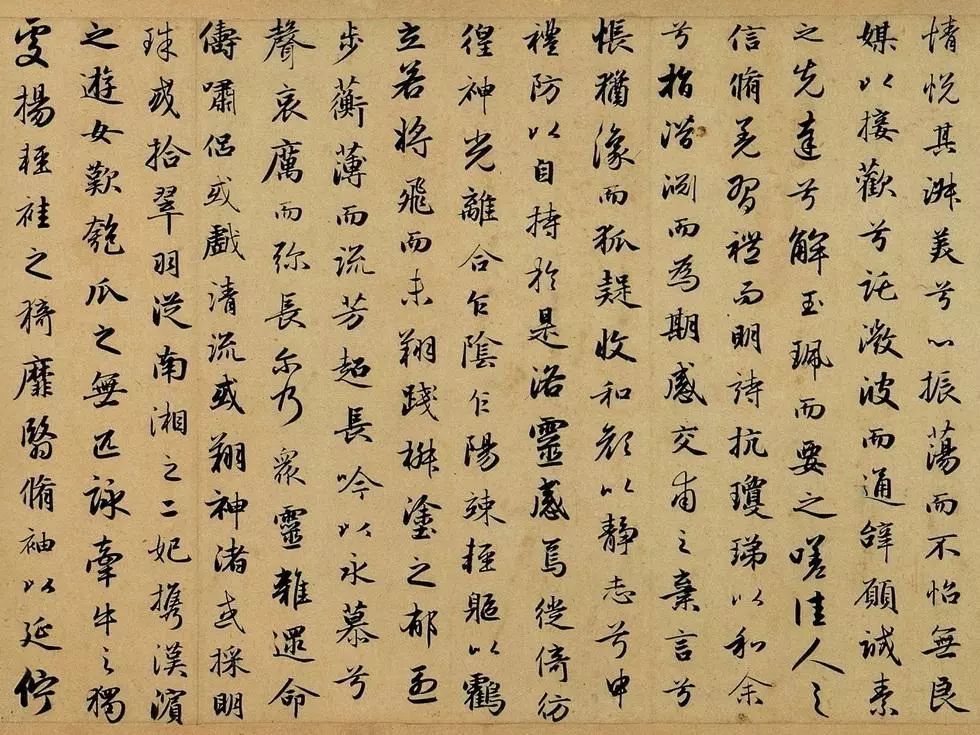 情悦其淑美兮心振蕩而不怡無良
媒以接歡兮託微波而通辭願誠素
之先達兮解玉珮而要之嗟佳人之
信脩羌習禮而明詩抗瓊珶以和余
兮指潛淵而為期感交甫之棄言兮
悵猶豫而狐疑收和顔以静志兮申
禮防以自持於是洛靈感焉徙倚彷
徨神光離合乍陰乍陽竦輕軀以鶴
立若將飛而未翔踐椒塗之郁烈
步蘅薄而流芳超長吟以永慕兮
聲哀厲而弥長尓乃衆靈雜遝命
儔嘯侶或戲清流或翔神渚或採明
珠或拾翠羽從南湘之二妃携漢濱
之遊女歎匏瓜之無匹詠牽牛之獨
處揚輕袿之猗靡翳脩袖以延佇